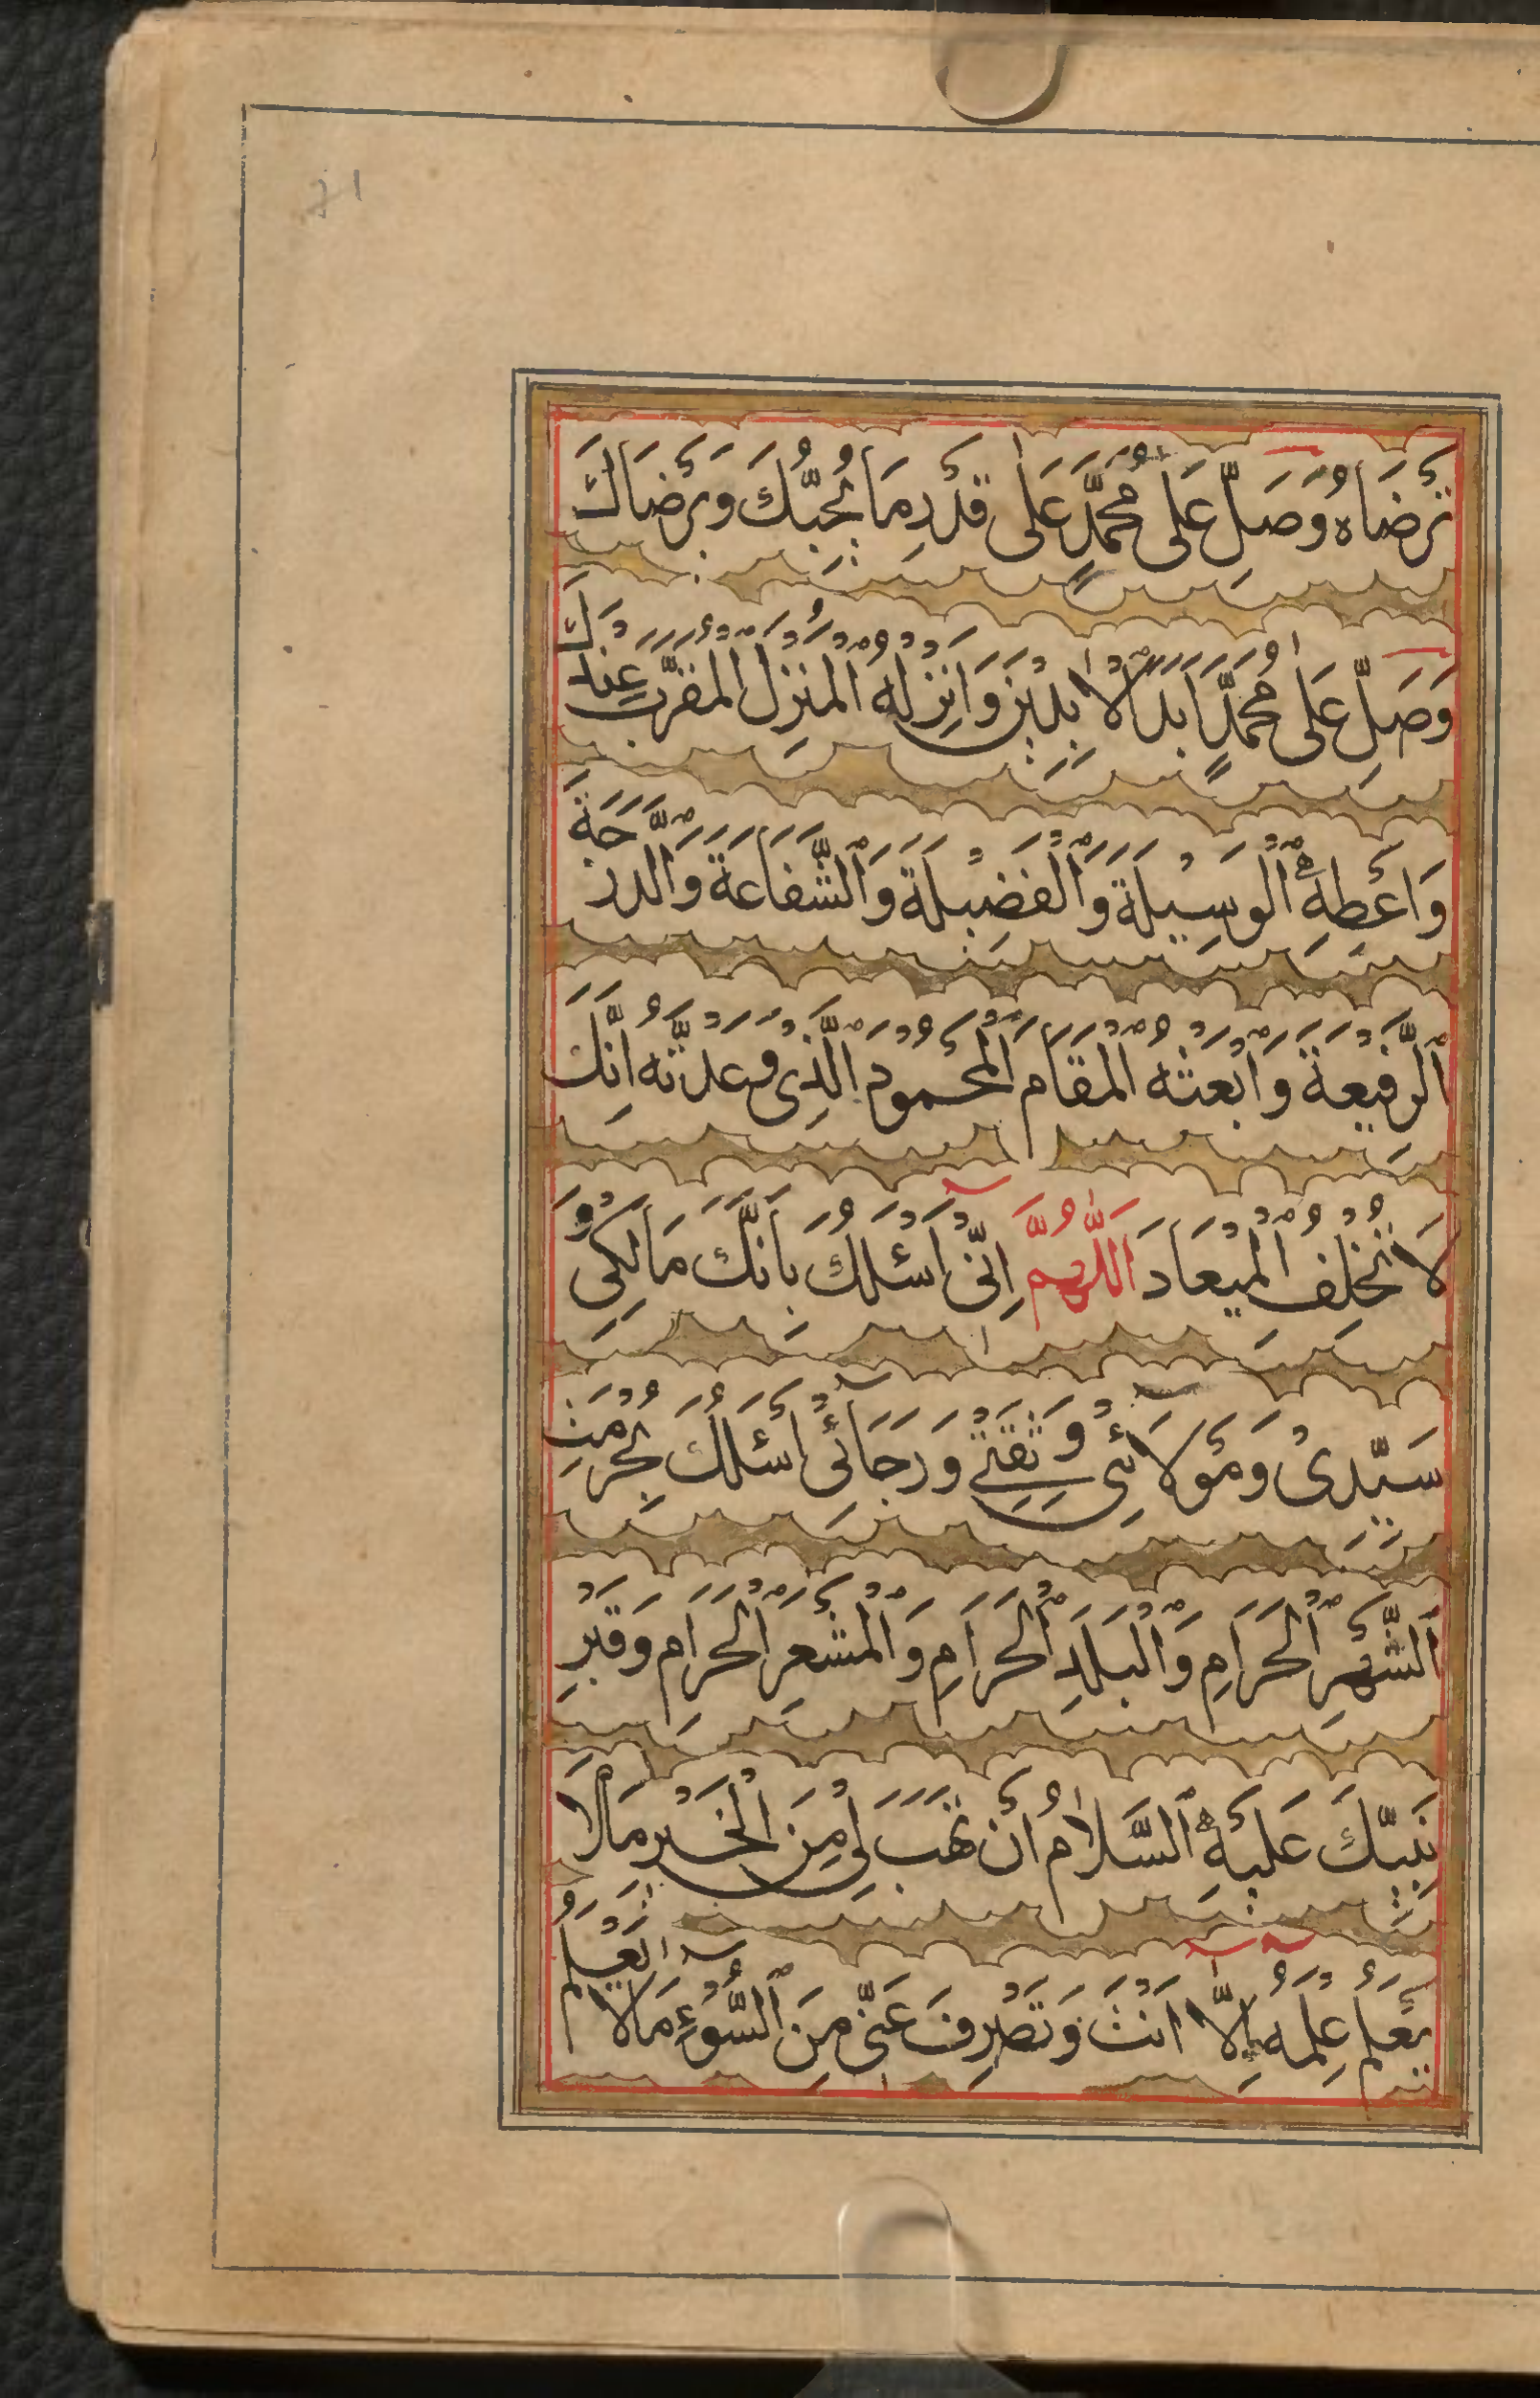 تَرْضَاهُ وَصَلِّ عَلٰى مُحَمَّدٍ عَلٰى قَدْرِ مَا يُحِبُّكَ وَيَرْضَاكَ
وَصَلِّ عَلٰى مُحَمَّدٍ اَبَدَ الْاٰبِدِيْنَ وَاَنْزِلْهُ الْمُنْزَلَ الْمُقَرَّبَ عِنْدَكَ
وَاَعْطِهِ الْوَسِيْلَةَ وَالْفَضِيْلَةَ وَالشَّفَاعَةَ وَالدَّرَجَةَ
الرَّفِيْعَةَ وَابْعَثْهُ الْمَقَامَ الْمَحْمُوْدَ الَّذِىْ وَعَدْتَّهُ اِنَّكَ
لَا تُخْلِفُ الْمِيْعَادَ اَللّٰهُمَّ اِنِّىْ اَسْئَلُكَ بِاَنَّكَ مَالِكِىْ وَ
سَيِّدِىْ وَمَوْلَائِىْ وَثِقَتِىْ وَرَجَائِىْ اَسْئَلُكَ بِحُرْمَتِ
الشَّهْرِ الْحَرَامِ وَالْبَلَدِ الْحَرَامِ وَالْمَشْعَرِ الْحَرَامِ وَقَبْرِ
نَبِيِّكَ عَلَيْهِ السَّلَامُ اَنْ تَهَبَ لِىْ مِنَ الْخَيْرِ مَالَا
يَعْلَمُ عِلْمَهُ اِلَّا اَنْتَ وَتَصْرِفَ عَنِّىْ مِنَ السُّوْءِ مَالَا يَعْلَمُ